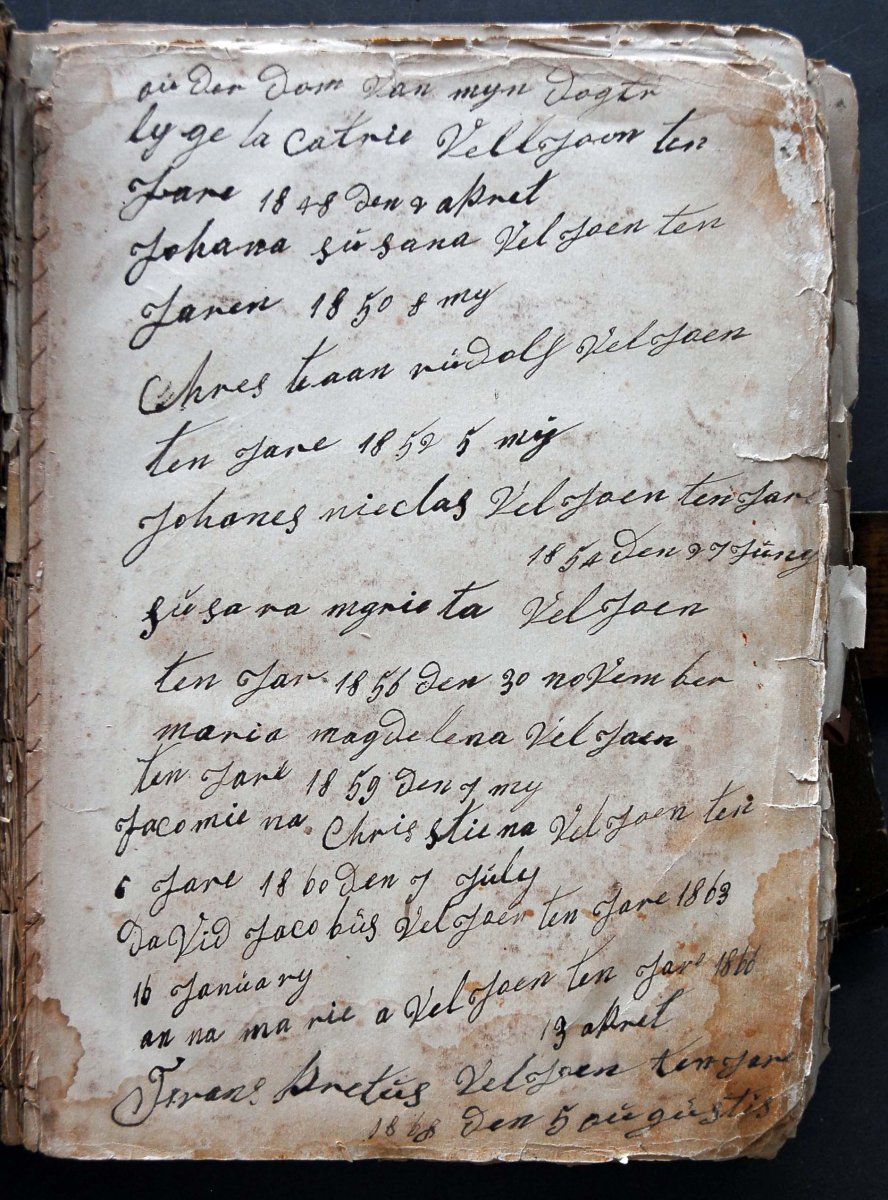 ou der dom van myn dogtr
ly ge la Catrie Velljoen ten
Jare 1848 den 2 apret
Johana susana Vel Joen ten
Jaren 1850 8 my
Chres teaan rudolf Vel Joen
ten Jare 1852 5 my
Johanes nieclas Vel Joen ten Jare
1854 den 27 Juny
susara mgrieta Vel Joen
ten Jar 1856 den 30 november
maria magdelena Vel Joen
ten Jare 1859 den 7 my
Jacomie na Chrisstiena Vel Joen ten
6 Jare 1860 den 7 July
david Jacobus VelJoen ten Jare 1863
16 January
an na ma rie a Vel Joen ten Jare 1866
13 apret
Frans pretus VelJoen ten Jare
1868 den 5 augustis